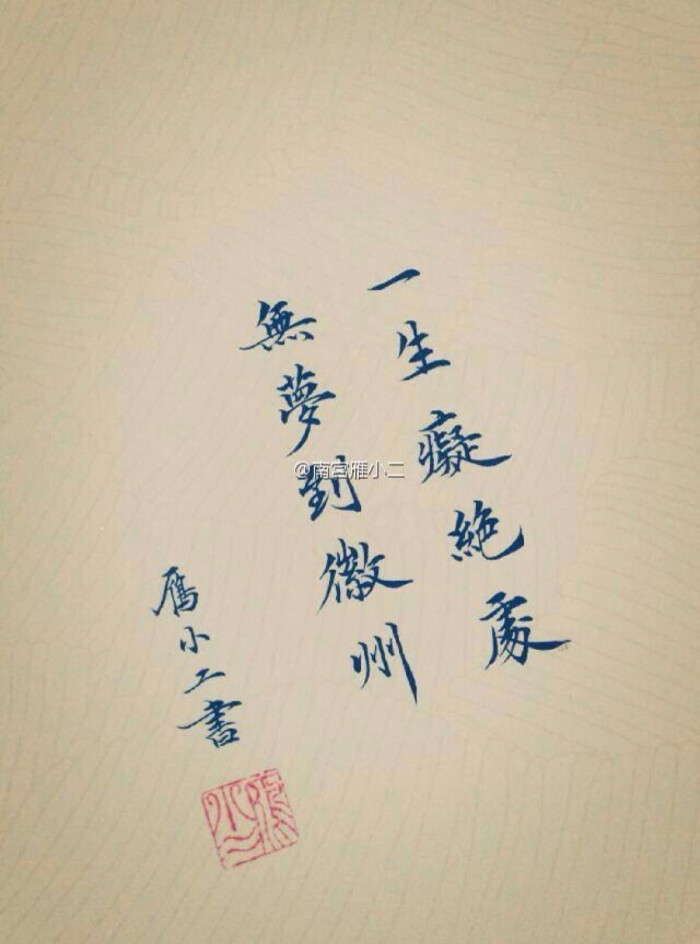 一生癡絕處
無夢到徽州
雁小二書
@南宫雁小二
雁小二